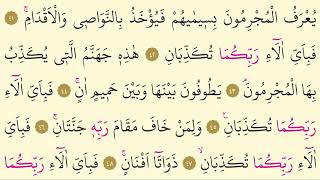 يُعْرَفُ الْمُجْرِمُونَ بِسِيمٰيهُمْ فَيُؤْخَذُ بِالنَّوَاصٖى وَالْاَقْدَامِۚ ﴿٤١﴾
فَبِاَيِّ اٰلَٓاءِ رَبِّكُمَا تُكَذِّبَانِ ﴿٤٢﴾ هٰذِهٖ جَهَنَّمُ الَّتٖى يُكَذِّبُ
بِهَا الْمُجْرِمُونَۢ ﴿٤٣﴾ يَطُوفُونَ بَيْنَهَا وَبَيْنَ حَمٖيمٍ اٰنٍۚ ﴿٤٤﴾ فَبِاَيِّ اٰلَٓاءِ
رَبِّكُمَا تُكَذِّبَانِ۟ ﴿٤٥﴾ وَلِمَنْ خَافَ مَقَامَ رَبِّهٖ جَنَّتَانِۚ ﴿٤٦﴾ فَبِاَيِّ
اٰلَٓاءِ رَبِّكُمَا تُكَذِّبَانِۙ ﴿٤٧﴾ ذَوَاتَٓا اَفْنَانٍۚ ﴿٤٨﴾ فَبِاَيِّ اٰلَٓاءِ رَبِّكُمَا